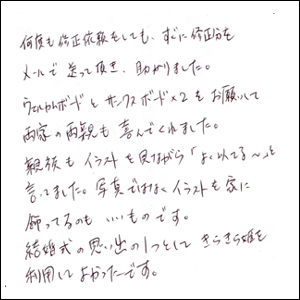 何度も修正依頼をしても、すぐに修正分を
メールで送って頂き、助かりました。
ウェルカムボードとサンクスボード×2をお願いして
両家の両親も喜んでくれました。
親族もイラストを見ながら「よく似てる〜」と
言ってました。写真ではなくイラストを家に
飾ってるのもいいものです。
結婚式の思い出の1つとしてきらきら姫を
利用してよかったです。